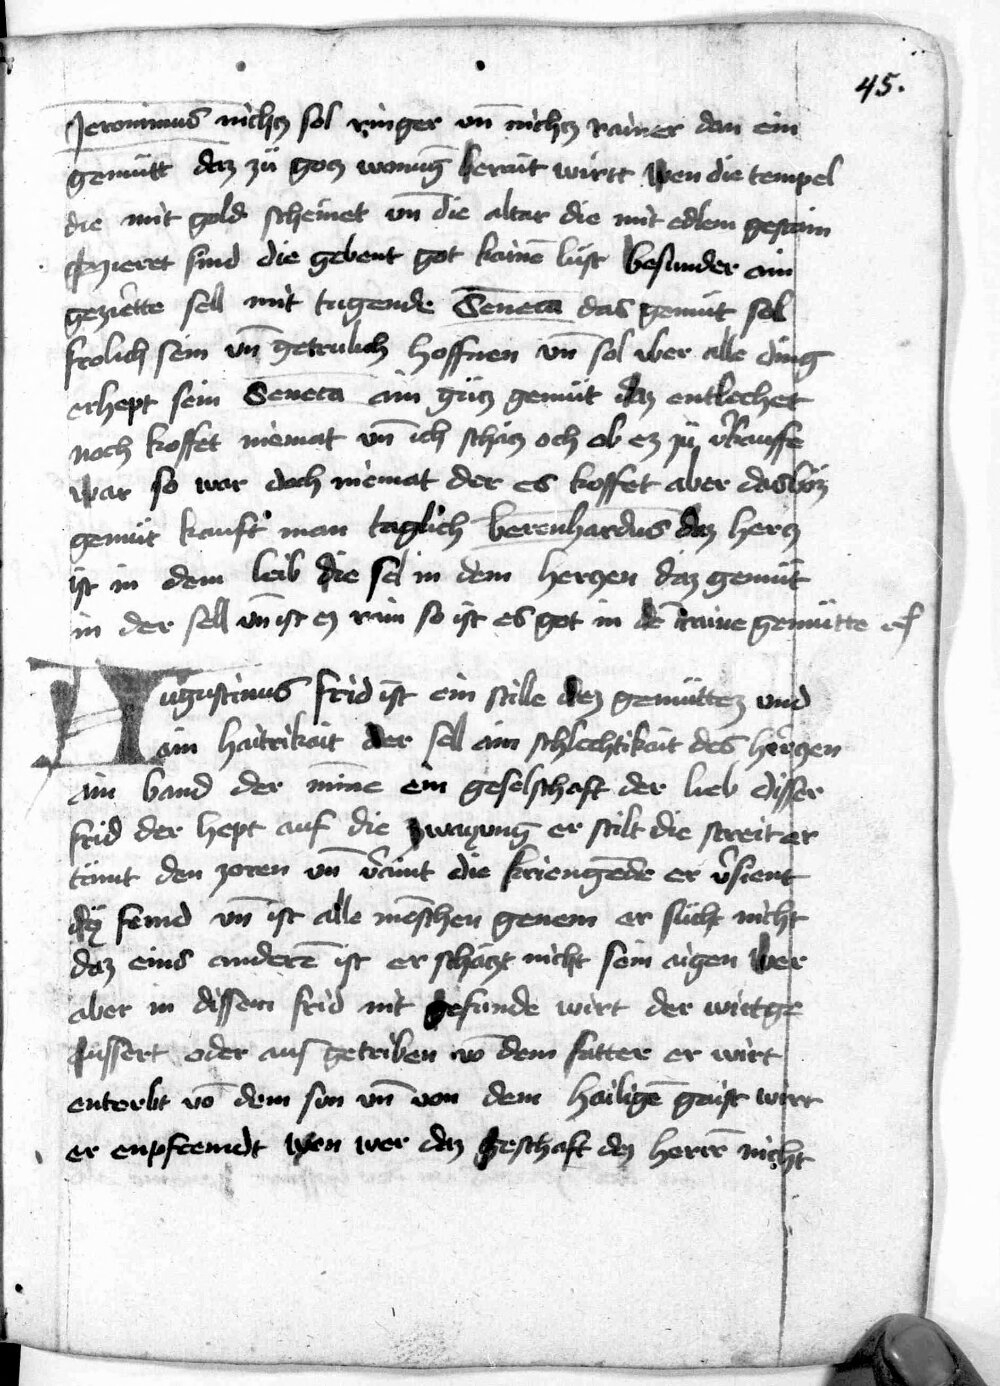 45.
Jeronimus nichcz sol ringer vn̄ nichcz rainer dan ein
gemütt daz zü gocz wonūg berait wirtt wen die tempel
die mit gold scheinet vn̄ die altar die mit edlem gestain
geczieret sind die gebent got kainē lust besunder ain
gezierte sell mit tugende Seneca das gemüt sol
frolich sein vn̄ getrulich hoffnen vn̄ sol vber alle ding
erhept sein Seneca ain gücz gemüt daz entlechet
noch koffet niemat vn̄ ich schäcz och ob ez zü v̓kauffe
war so wär doch niemat der es koffet aber das böz
gemüt kauft man taglich berenhardus daz hercz
ist in dem leib die sel in dem herczen daz gemüt
in der sell vn̄ ist ez rain so ist es got in dē raine gemütte
Augustinus frid ist ein stille dez gemüttez und
ain haitrikait der sell ain schlechtikait des herczen
ain band der minne ein geselschaft der lieb disser
frid der hept auf die zwayung er stilt die streit er
tämt den zoren vn̄ v̓aint die kriengēde er v̓sient
dy̎ feind vn̄ ist alle mēschen genem er sücht nicht
daz eins anderē ist er schäczt nicht sein aigen wer
aber in dissem frid nit gefunde wirt der wirt ge
äussert oder aus getriben vō dem fatter er wirt
enterbt vō dem sun vn̄ von dem hailigē gaist wirt
er enpfremdt wen wer daz geschäft dez herrē nicht